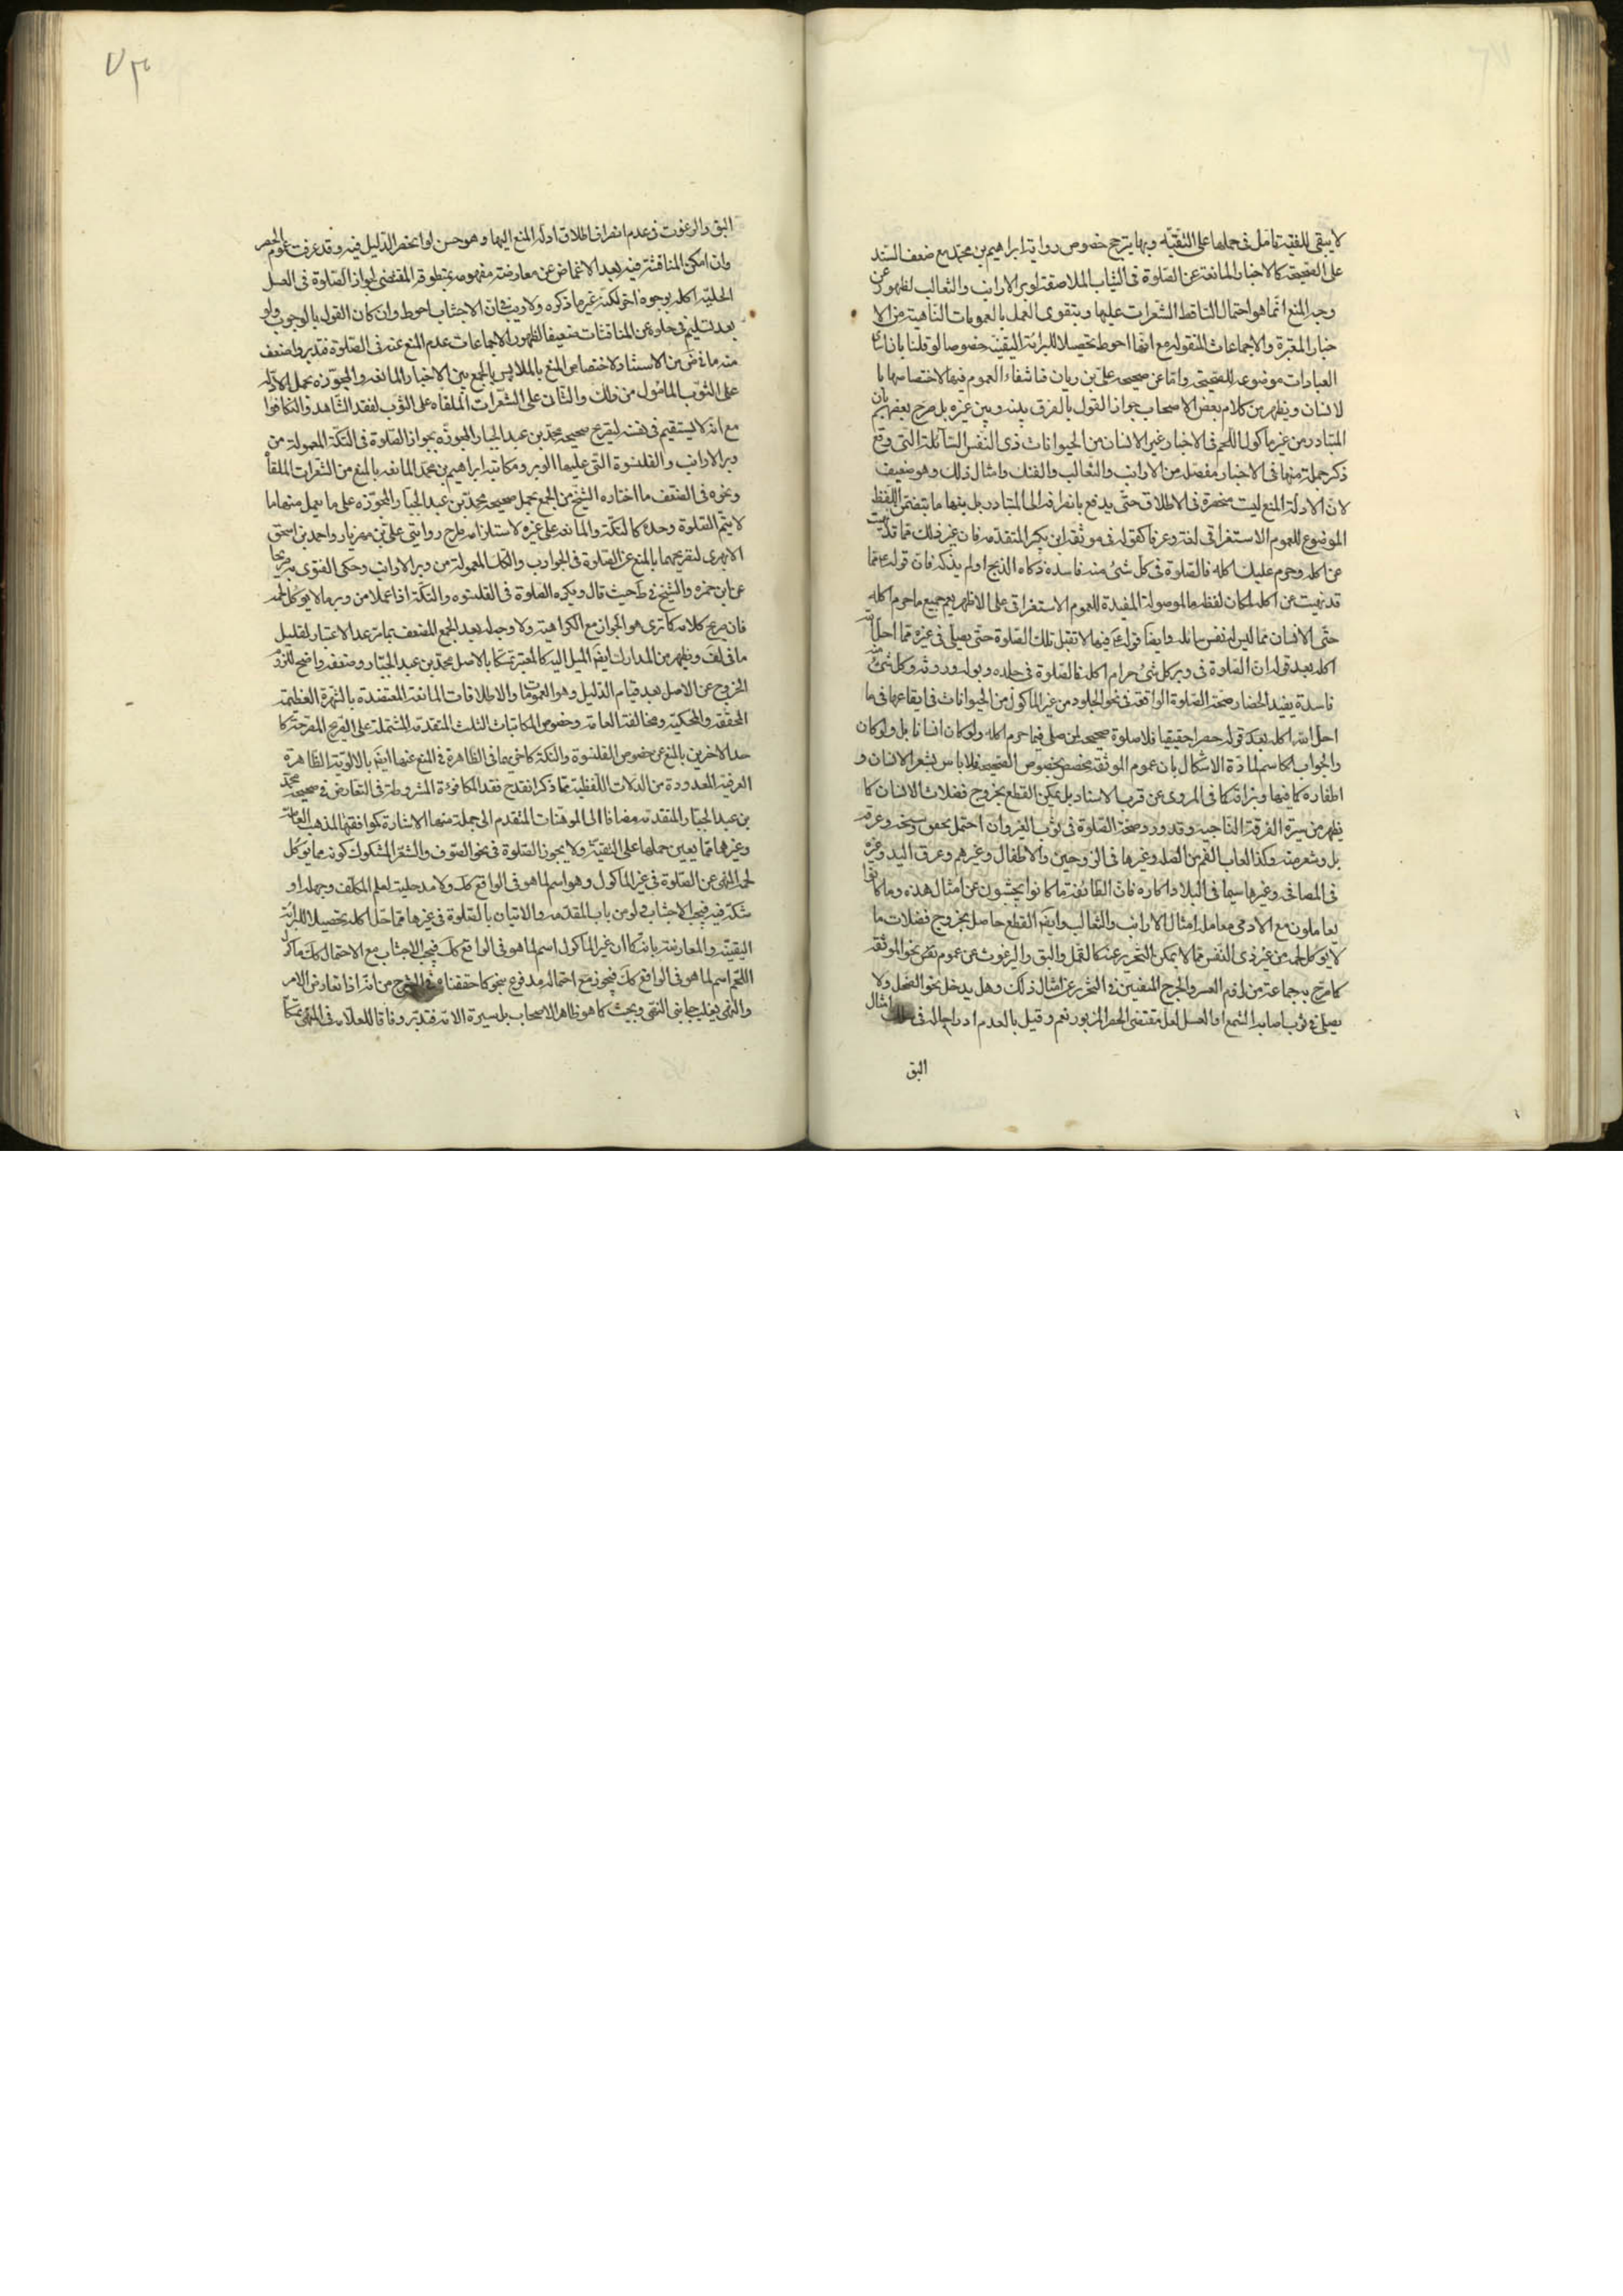 لا يبقى للفقيه تامل فى حملها على التقيّة وبها يترجح خصوص رواية ابراهيم بن محمّد مع ضعف السند
على الصحيحة كالاخبار المانعة عن الصّلوة فى الثياب الملاصقة لوبر الارانب والثعالب لظهور عن
وجه المنع انّما هو احتمال التناقط الشعرات عليها ويتقوى العمل بالعمومات الناهية من الا
خبار المعتبرة والاجماعات المنقولة مع انها احوط تحصيلا للبرائة اليقينة خصوصا لو قلنا بان
العبادات موضوعه للصحيحة وامّا عن صحيحه علىّ بن ريان فباشفاء العموم فيها لاختصاصها با
لانسان ويظهر من كلام بعض الاصحاب جواز القول بالفرق بينه وبين غيره بل صرح بعضهم بان
المتبادر من غير ماكول اللّحم فى الاخبار غير الانسان من الحيوانات ذى النّفس السّائلة التى وقع
ذكر جملة منها فى الاخبار مفصّله من الارانب والثعالب والفنك وامثال ذلك وهو ضعيف
لانّ الادلّة المنع ليست منحصرة فى الاطلاق حتّى يدفع بانصرافه الى المتبادر بل منها ما يتضمّن اللّفظ
الموضوع للعموم الاستغراقى لغة وعرفا كقوله فى موثقة ابن بكير المتقدمه فان غير ذلك ممّا قد نهيت
عن اكله وحرم عليك اكله فالصّلوة فى كل شئ منه فاسدة ذكاه الذبح او لم يذكه فان قوله ع ممّا
قد نهيت عن اكله لمكان لفظة ما الموصولة المفيدة للعموم الاستغراقى على الاظهر يعم جميع ما حرم اكله
حتّى الانسان ممّا ليس له نفس سائله وايضا قوله ع فيها لا تقبل تلك الصّلوة حتّى يصلّى فى غيره ممّا احلّ الله
اكله بعد قوله ان الصّلوة فى وبر كل شئ حرام اكله فالصّلوة فى جلده وبوله وروثه وكل شئ منه
فاسدة يفيد الحصار صحة الصّلوة الواقعة فى نحو الجلود من غير الماكول من الحيوانات فى ايقاعها فى ما
احلّ الله اكله بعد قوله حصرا حقيقيا فلا صلوة صحيحه لمن صلى فيما حرم اكله ولو كان انسانا بل ولو كان
والجواب الحاسم لمادّة الاشكال بان عموم الموثقة مخصص بخصوص الصحيحة فلا باس بشعر الانسان و
اظفاره كما فيها وبزاقه كما فى المروى عن قرب الاسناد بل يمكن القطع بخروج فضلات الانسان كما
يظهر من سيرة الفرقة الناجيه وقد ورد صحّة الصّلوة فى ثوب الغير وان احتمل لحوق وسخه وعرقه
بل وشعر منه وكذا لعاب الفم من القبلة وغيرها فى الزوجين والاطفال وغيرهم وعرق اليد وغيره
فى المصافى وغيرها سيما فى البلاد الحاره فانّ الطّائفة ما كانوا يجتنبون عن امثال هذه وما كانوا
يعاملون مع الادمى معامله امثال الارانب والثعالب وايضا القطع حاصل بخروج فضلات ما
لا يوكل لحمه من غير ذى النّفس ممّا لا يمكن التحرّز عنه كالقمّل والبق والبرغوث عن عموم نصّ نحو الموثقه
كما صرّح به جماعة من لزوم العسر والحرج المنفيين فى التحرز عن امثال ذلك وهل يدخل نحو النّحل ولا
يصلى فى ثوب اصابه الشمع او العسل لعله مقتضى الحصر المزبور نعم وقيل بالعدم ادراجا له فى امثال
البق
البق والبرغوث فى عدم انصراف اطلاق ادلّه المنع اليها وهو حسن لو انحصر الدّليل فيه وقد عرفت عموم الحصر
وان امكن المناقشة فيه بعد الاغماض عن معارضة مفهومه بمنطوقه المقتضى لجواز الصّلوة فى العسل
الحلية اكله بوجوه اخر لكنه غير ما ذكره ولا ريب فى ان الاجتناب احوط وان كان القول بالوجوب ولو
بعد تسليم فى خلوّه عن المناقشات ضعيفا لظهور الاجماعات عدم المنع عنه فى الصّلوة فتدبر واضعف
منه ما مرّ من الاستثناء لاختصاص المنع بالملابس بالجمع بين الاخبار المانعه والمجوّزه بحمل الاوّله
على الثوب المامول من ذلك والثانى على الشعرات الملقاة على الثوب لفقد الشّاهد والتكافوا
مع انه لا يستقيم فى نفسه لتصريح صحيحه محمّد بن عبد الجبار المجوّزه بجواز الصّلوة فى التكّة المعمولة من
وبر الارانب والقلنسوة التى عليها الوبر ومكاتبة ابراهيم بن محمّد المانعه بالمنع من الشعرات الملقاة
ونحوه فى الضعف ما اختاره الشّيخ من الجمع بحمل صحيحه محمّد بن عبد الجبّار المجوّزه على ما يعمل منهما ما
لا يتمّ الصّلوة وحده كالتكّة والمانعه على غيره لاستلزامه طرح روايتى على بن مهزيار واحمد بن اسحق
الابهرى لتصريحهما بالمنع عن الصّلوة فى الجوارب والتكك المعمولة من وبر الارانب وحكى الفتوى به صريحا
عن ابن حمزه والشّيخ فى ط حيث قال ويكره الصّلوة فى القلنسوه والتكّة اذا عملا من وبر ما لا يوكل لحمه
فان صريح كلامه كما ترى هو الجواز مع الكراهية ولا وجه له بعد الجمع المضعف بما مرّ عد الاعتبار لقليل
ما فى لف ويظهر من المدارك ايضا الميل اليه كالمعتبر تمسّكا بالاصل محمّد بن عبد الجبّار وضعفه واضح للزوم
الخروج عن الاصل بعد قيام الدّليل وهو العمومات والاطلاقات المانعة المعتضده بالشهرة العظيمه
المحققه والمحكيّه ومخالفة العامة وخصوص المكاتبات الثلث المتقدمه المشتمله على الصريح المصرحة كا
حد الاخرين بالمنع عن خصوص القلنسوة والتكّة كاخريها فى الظاهرة فى المنع عنها ايضا بالاولويّة الظاهرة
العرفية المعدودة من الدّلالات اللّفظية ممّا ذكر انقدح فقد المكافوة المشروطة فى التعارض فى صحيحه محمّد
بن عبد الجبّار المتقدّمه مضافا الى الموهنات المتقدم الى جملة منها الاشارة كموافقتها لمذهب العامّة
وغيرها ممّا يعين حملها على التقيّة ولا يجوز الصّلوة فى نحو الصّوف والشعر المشكوك كونه مما يوكل
لحمه للنهى عن الصّلوة فى غير الماكول وهو اسم لما هو فى الواقع كك ولا مدخلية لعلم المكلّف وجهله او
شكّه فيه فيجب الاجتناب ولو من باب المقدّمه والاتيان بالصّلوة فى غيرها ممّا حلّ اكله تحصيلا للبرائة
اليقينيّة والمعارضة بانّه كما ان غير الماكول اسم لما هو فى الواقع كك فيجب الاجتناب مع الاحتمال كك ماكول
اللّحم اسم لما هو فى الواقع كك فيجوز مع احتماله مدفوع بنحو كما حققناه فى الشرح من انّه اذا تعارض الامر
والنّهى يغلب جانب النّهى وبحيث كما هو ظاهر الاصحاب بل سيرة الامة فتدبّر وفاقا للعلّامه فى المنتهى تمسّكا